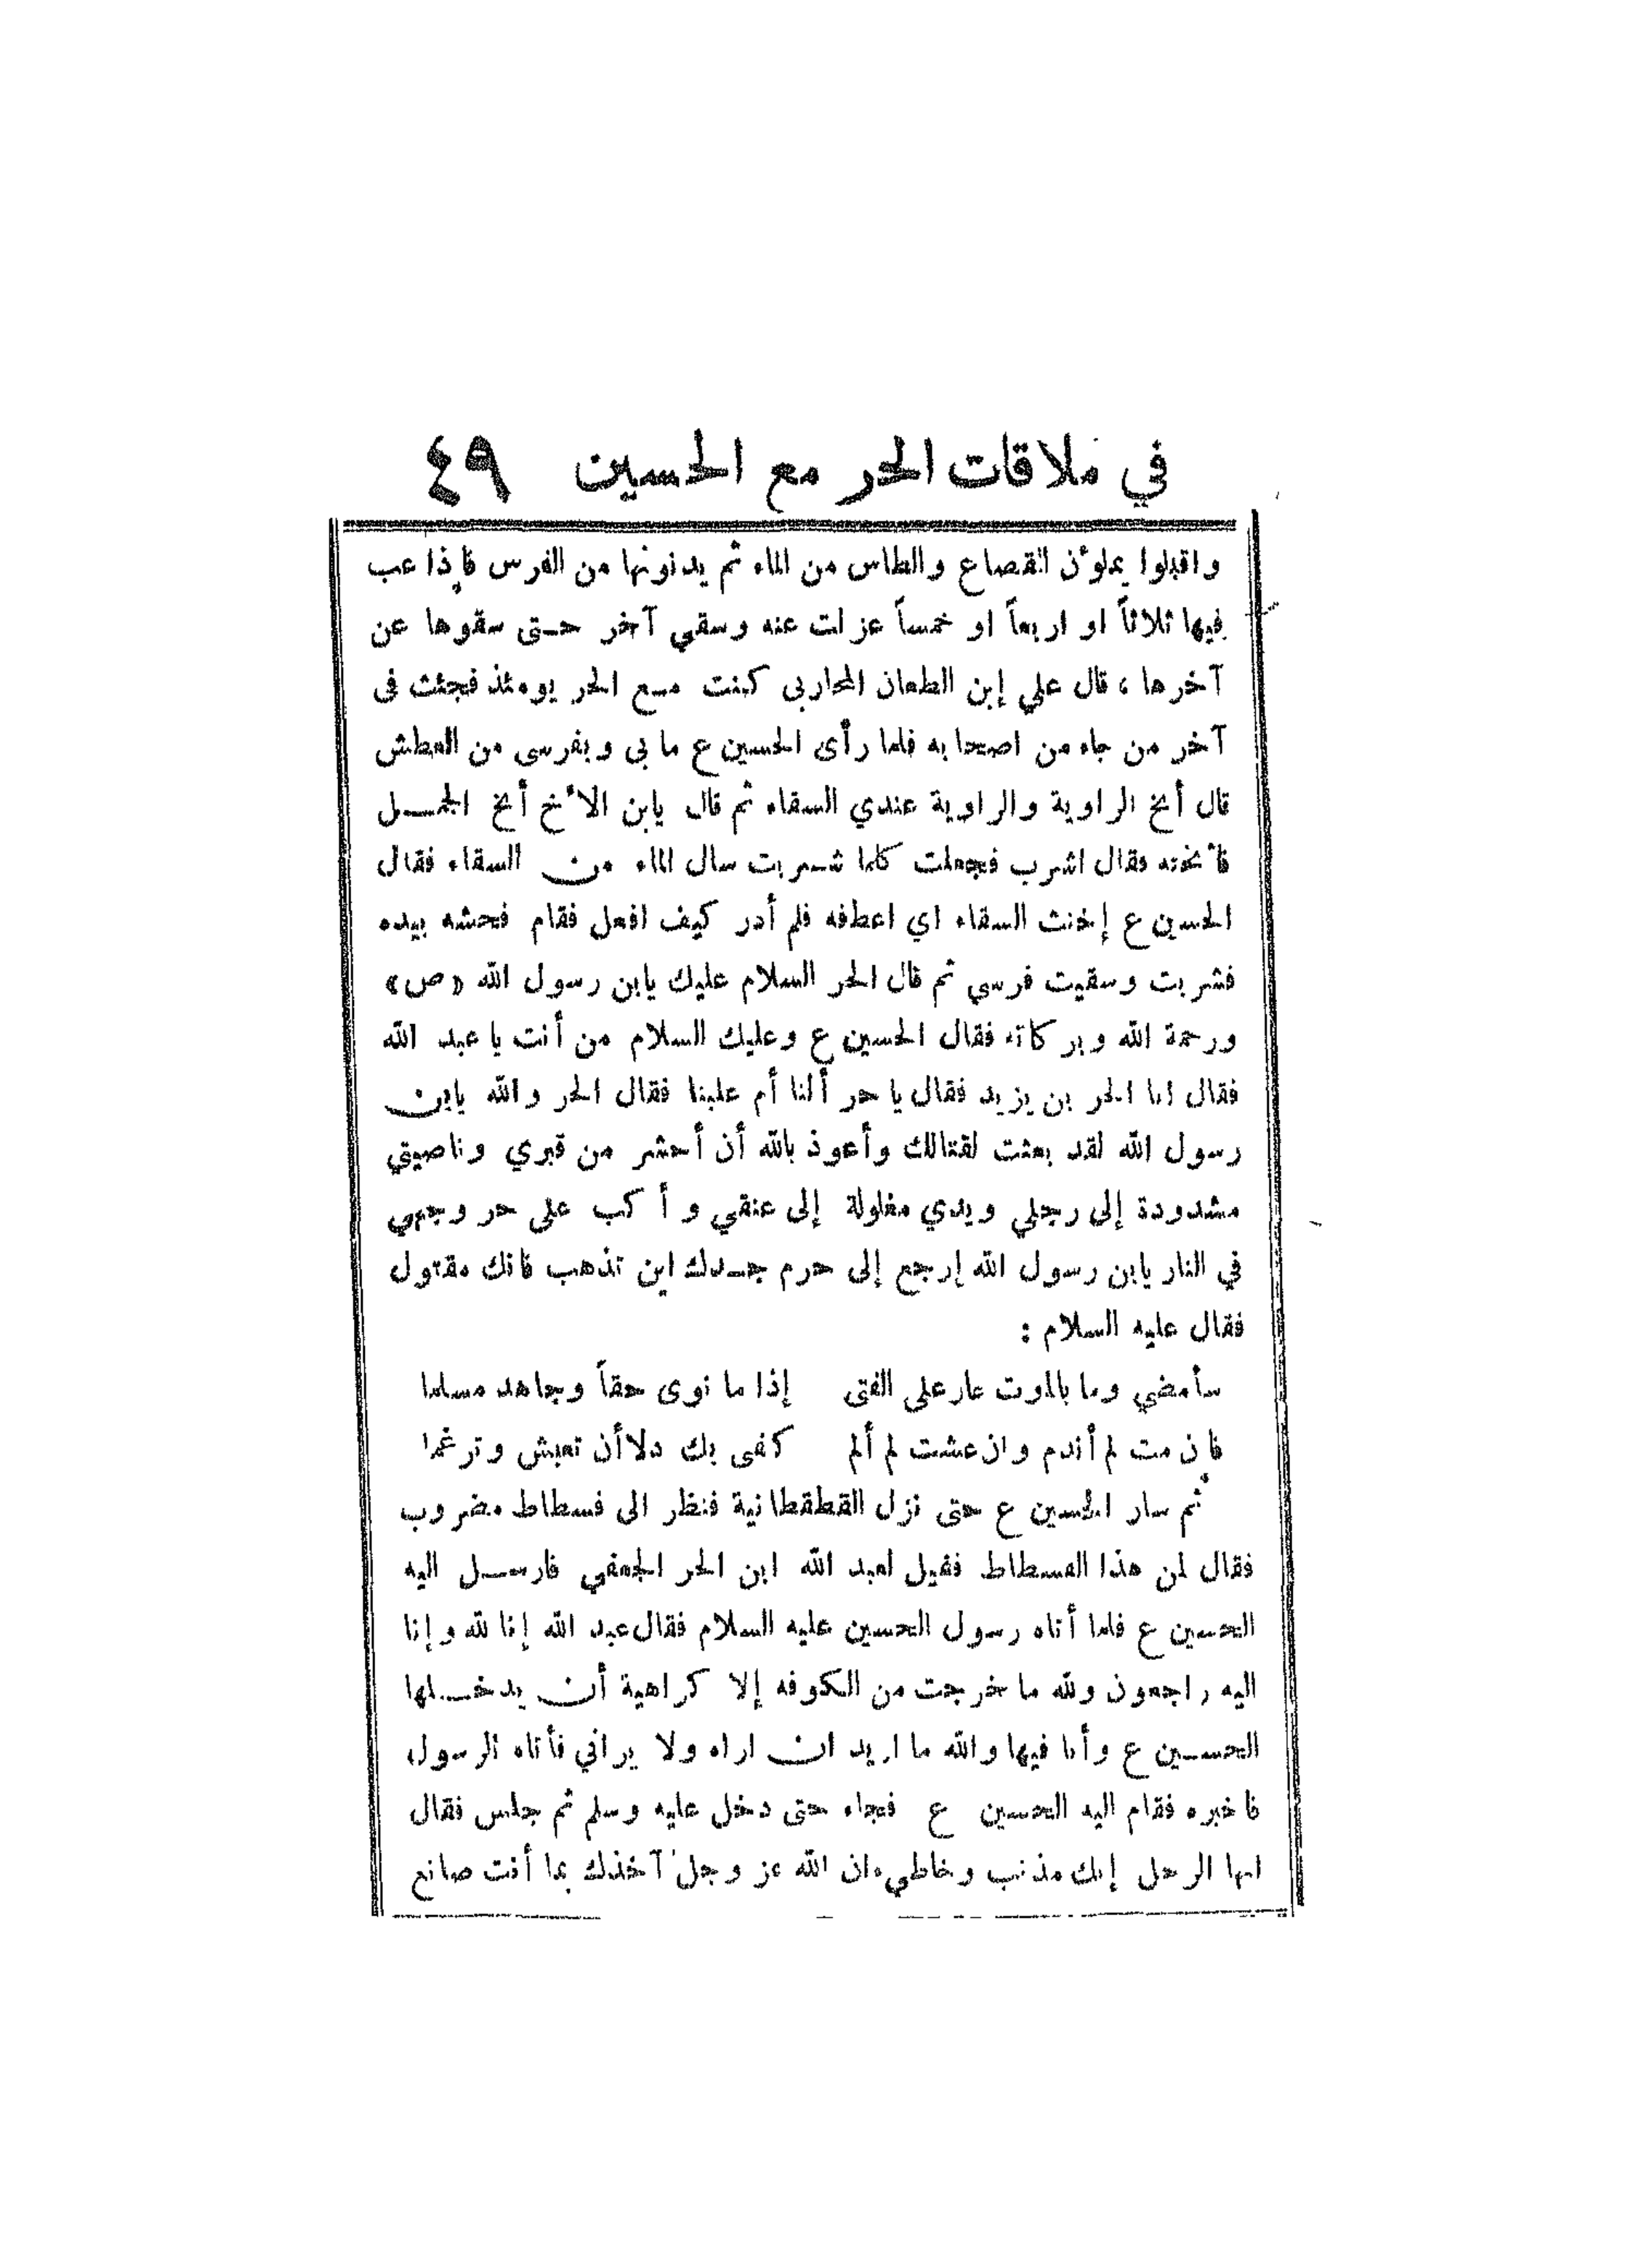 في ملاقات الحر مع الحسين ٤٩
واقبلوا يملؤن القصاع والطاس من الماء ثم يدنونها من الفرس فإذا عب
فيها ثلاثاً او اربعاً او خمساً عزلت عنه وسقي آخر حتى سقوها عن
آخرها ، قال علي إبن الطعان المحاربى كنت مع الحر يومئذ فجئت فى
آخر من جاء من اصحابه فلما رأى الحسين ع ما بى وبفرسى من العطش
قال أنخ الراوية والراوية عندي السقاء ثم قال يابن الأخ أنخ الجمل
فأنخته فقال اشرب فجعلت كلما شربت سال الماء من السقاء فقال
الحسين ع إخنث السقاء اي اعطفه فلم أدر كيف افعل فقام فحشه بيده
فشربت وسقيت فرسي ثم قال الحر السلام عليك يابن رسول الله «ص»
ورحمة الله وبركاته فقال الحسين ع وعليك السلام من أنت يا عبد الله
فقال انا الحر بن يزيد فقال يا حر ألنا أم علينا فقال الحر والله يابن
رسول الله لقد بعثت لقتالك وأعوذ بالله أن أحشر من قبري وناصيتي
مشدودة إلى رجلي ويدي مغلولة إلى عنقي وأكب على حر وجهي
في النار يابن رسول الله إرجع إلى حرم جدك اين تذهب فانك مقتول
فقال عليه السلام :
سأمضي وما بالموت عار على الفتى إذا ما نوى حقاً وجاهد مسلما
فان مت لم أندم وان عشت لم ألم كفى بك ذلا أن تعيش وترغما
ثم سار الحسين ع حتى نزل القطقطانية فنظر الى فسطاط مضروب
فقال لمن هذا الفسطاط فقيل لعبد الله ابن الحر الجعفي فارسل اليه
الحسين ع فلما أتاه رسول الحسين عليه السلام فقال عبد الله إنا لله وإنا
اليه راجعون ولله ما خرجت من الكوفه إلا كراهية أن يدخلها
الحسين ع وأنا فيها والله ما اريد ان اراه ولا يراني فأتاه الرسول
فاخبره فقام اليه الحسين ع فجاء حتى دخل عليه وسلم ثم جلس فقال
ايها الرجل إنك مذنب وخاطيء ان الله عز وجل آخذك بما أنت صانع